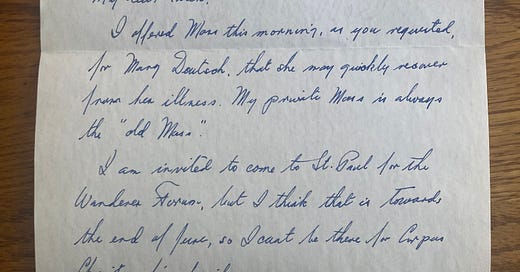 My dear
I offered Mass this morning, as you requested,
for Mary Deutsch, that she may quickly recover
from her illness. My private Mass is always
the "old Mass".
I am invited to come to St. Paul for the
Wanderer Forum, but I think that is towards
the end of June, so I can't be there for Corpus
Christi